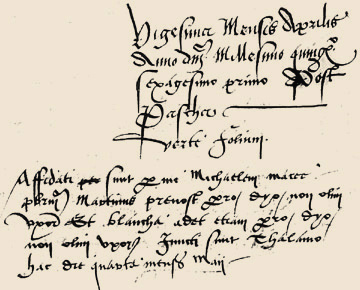 Vigesima Mensis Aprilis
Anno dñi Millesimo quinge.
sexagesimo primo Post
Pascha
Verte folium.
Affidati sunt per me Michaelem
pbrum Martinus prevost
uxor Et blancha adet etiam
non olim uxor Juncti sunt Thalamo
hac die quarta mensis Maii